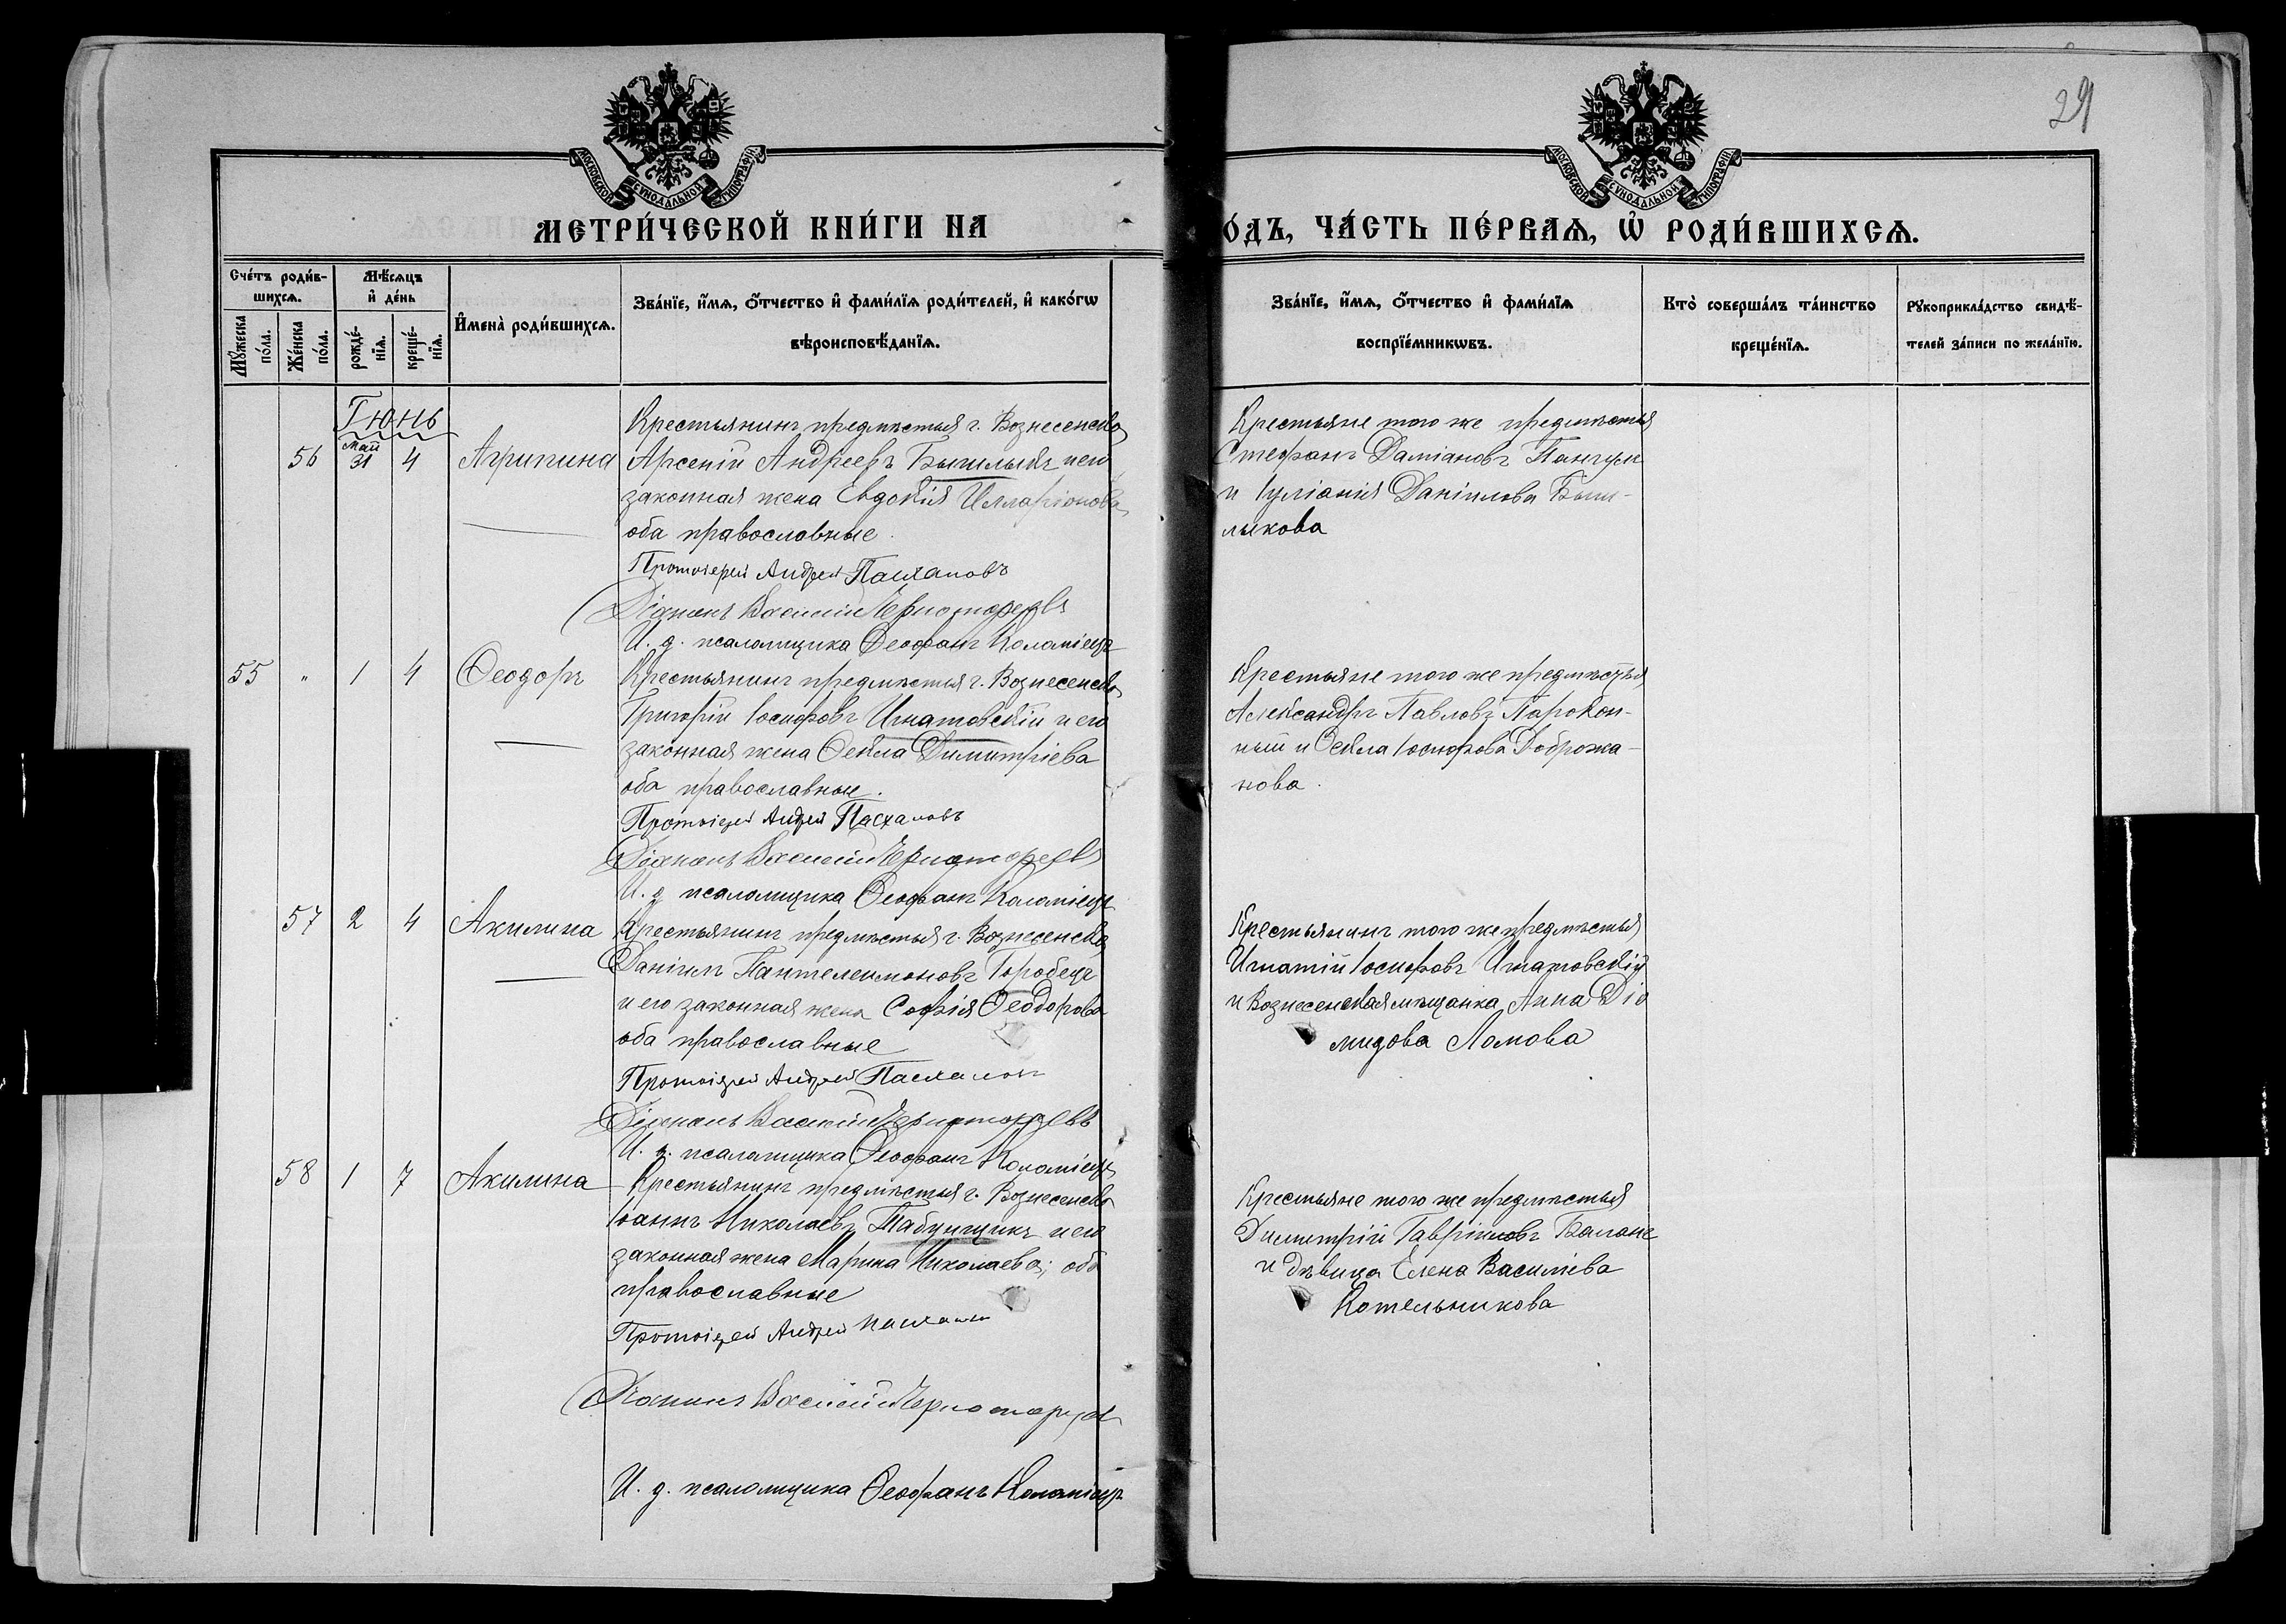 29
МОСКОВСКОЙ СѴНОДАЛЬНОЙ ТИПОГРАФІИ
МОСКОВСКОЙ СѴНОДАЛЬНОЙ ТИПОГРАФІИ
МЕТРИ́ЧЕСКОЙ КНИ́ГИ НА
О́ДЪ, ЧА́СТЬ ПЕ́РВАѦ, Ѡ҆ РОДИ́ВШИХСѦ.
Сче́тъ роди́в-
шихсѧ.
Мꙋ́жеска
по́ла.
Же́нска
по́ла.
Мѣ́сѧцъ
и҆ де́нь
рожде́-
нїѧ.
креще́-
нїѧ.
И҆мена̀ роди́вшихсѧ.
Зва́нїе, и҆́мѧ, ѻ҆́тчество и҆ фами́лїѧ роди́телей, и҆ како́гѡ
вѣроисповѣ́данїѧ.
Зва́нїе, и҆́мѧ, ѻ҆́тчество и҆ фами́лїѧ
воспрїе́мникѡвъ.
Кто̀ соверша́лъ та́инство
креще́нїѧ.
Рꙋкоприкла́дство свидѣ́-
телей за́писи по жела́нїю.
Іюнь
56 Май 31 4 Агрипина
Крестьянинъ предмѣстья г. Вознесенска
Арсеній Андреевъ и его
законная жена Евдокія Илларіонова
оба православные.
Протоіерей Андрей Пасхаловъ
Діаконъ Василій
И. д. псаломщика Ѳеофанъ Коломіецъ
Крестьяне того же предмѣстья
Стефанъ Даміановъ
и Іуліанія Даніилова Быш-
лыкова
55 " 1 4 Ѳеодоръ
Крестьянинъ предмѣстья г. Вознесенска
Григорій Іосифовъ Игнатовскій и его
законная жена Ѳекла Димитріева
оба православные.
Протоіерей Андрей Пасхаловъ
Діаконъ Василій
И. д. псаломщика Ѳеофанъ Коломіецъ
Крестьяне того же предмѣстья
Александръ Павловъ Парокон-
ный и Ѳекла Іосифова Доброжа-
нова.
57 2 4 Акилина
Крестьянинъ предмѣстья г. Вознесенска
Даніилъ Пантелеимоновъ Горобецъ
и его законная жена Софія Ѳеодорова
оба православные
Протоіерей Андрей Пасхаловъ
Діаконъ Василій
И. д. псаломщика Ѳеофанъ Коломіецъ
Крестьянинъ того же предмѣстья
Игнатій Іосифовъ Игнатовскій
и Вознесенская мѣщанка Анна Діо
мидова Ломова
58 1 7 Акилина
Крестьянинъ предмѣстья г. Вознесенска
Іоаннъ Николаевъ Табунщикъ и его
законная жена Марина Николаева; оба
православные
Протоіерей Андрей Пасхаловъ
Діаконъ Василій
И. д. псаломщика Ѳеофанъ Коломіецъ
Крестьяне того же предмѣстья
Димитрій Гавріиловъ
и дѣвица Елена Василіева
Котельникова